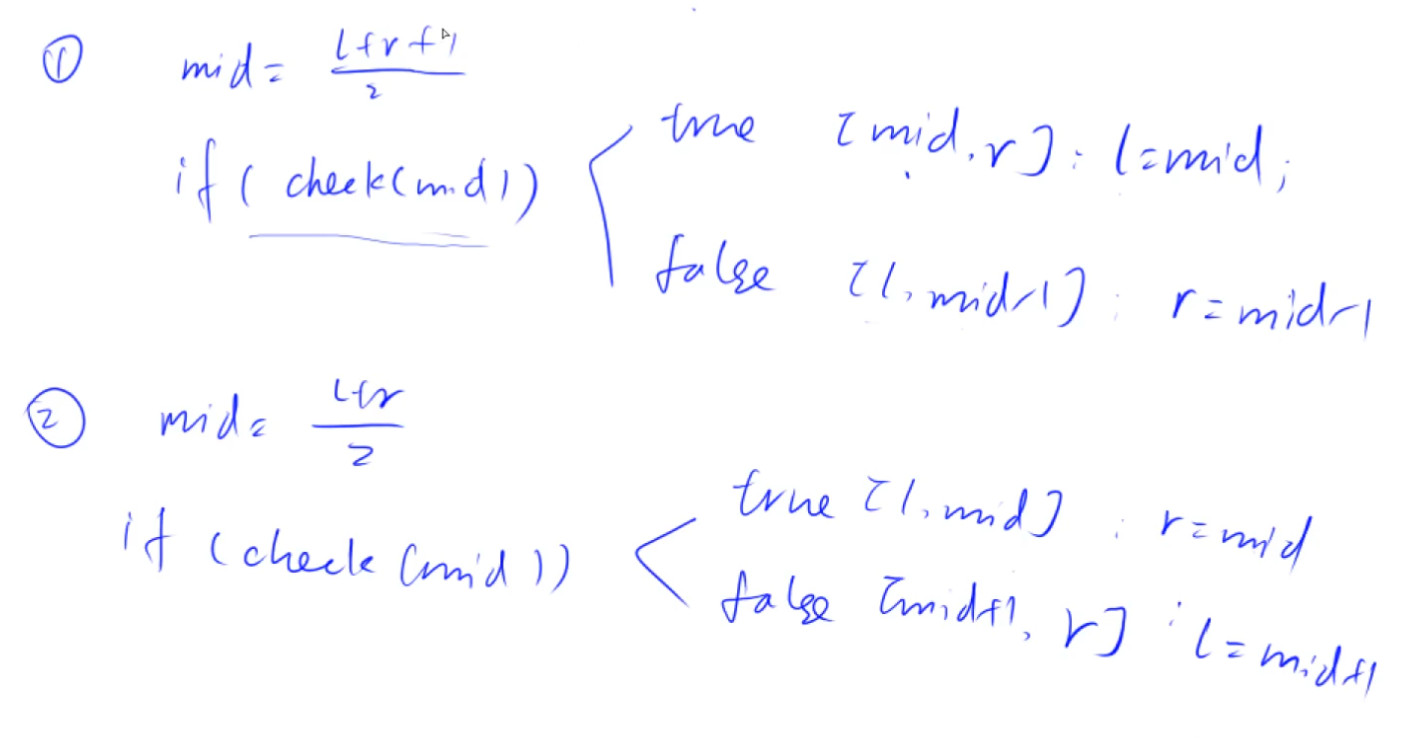 ① mid = (l+r+1)/2
if ( check(mid)) true [mid, r] : l=mid;
false [l, mid-1] : r=mid-1
② mid = (l+r)/2
if (check (mid)) true [l, mid] : r=mid
false [mid+1, r] : l=mid+1